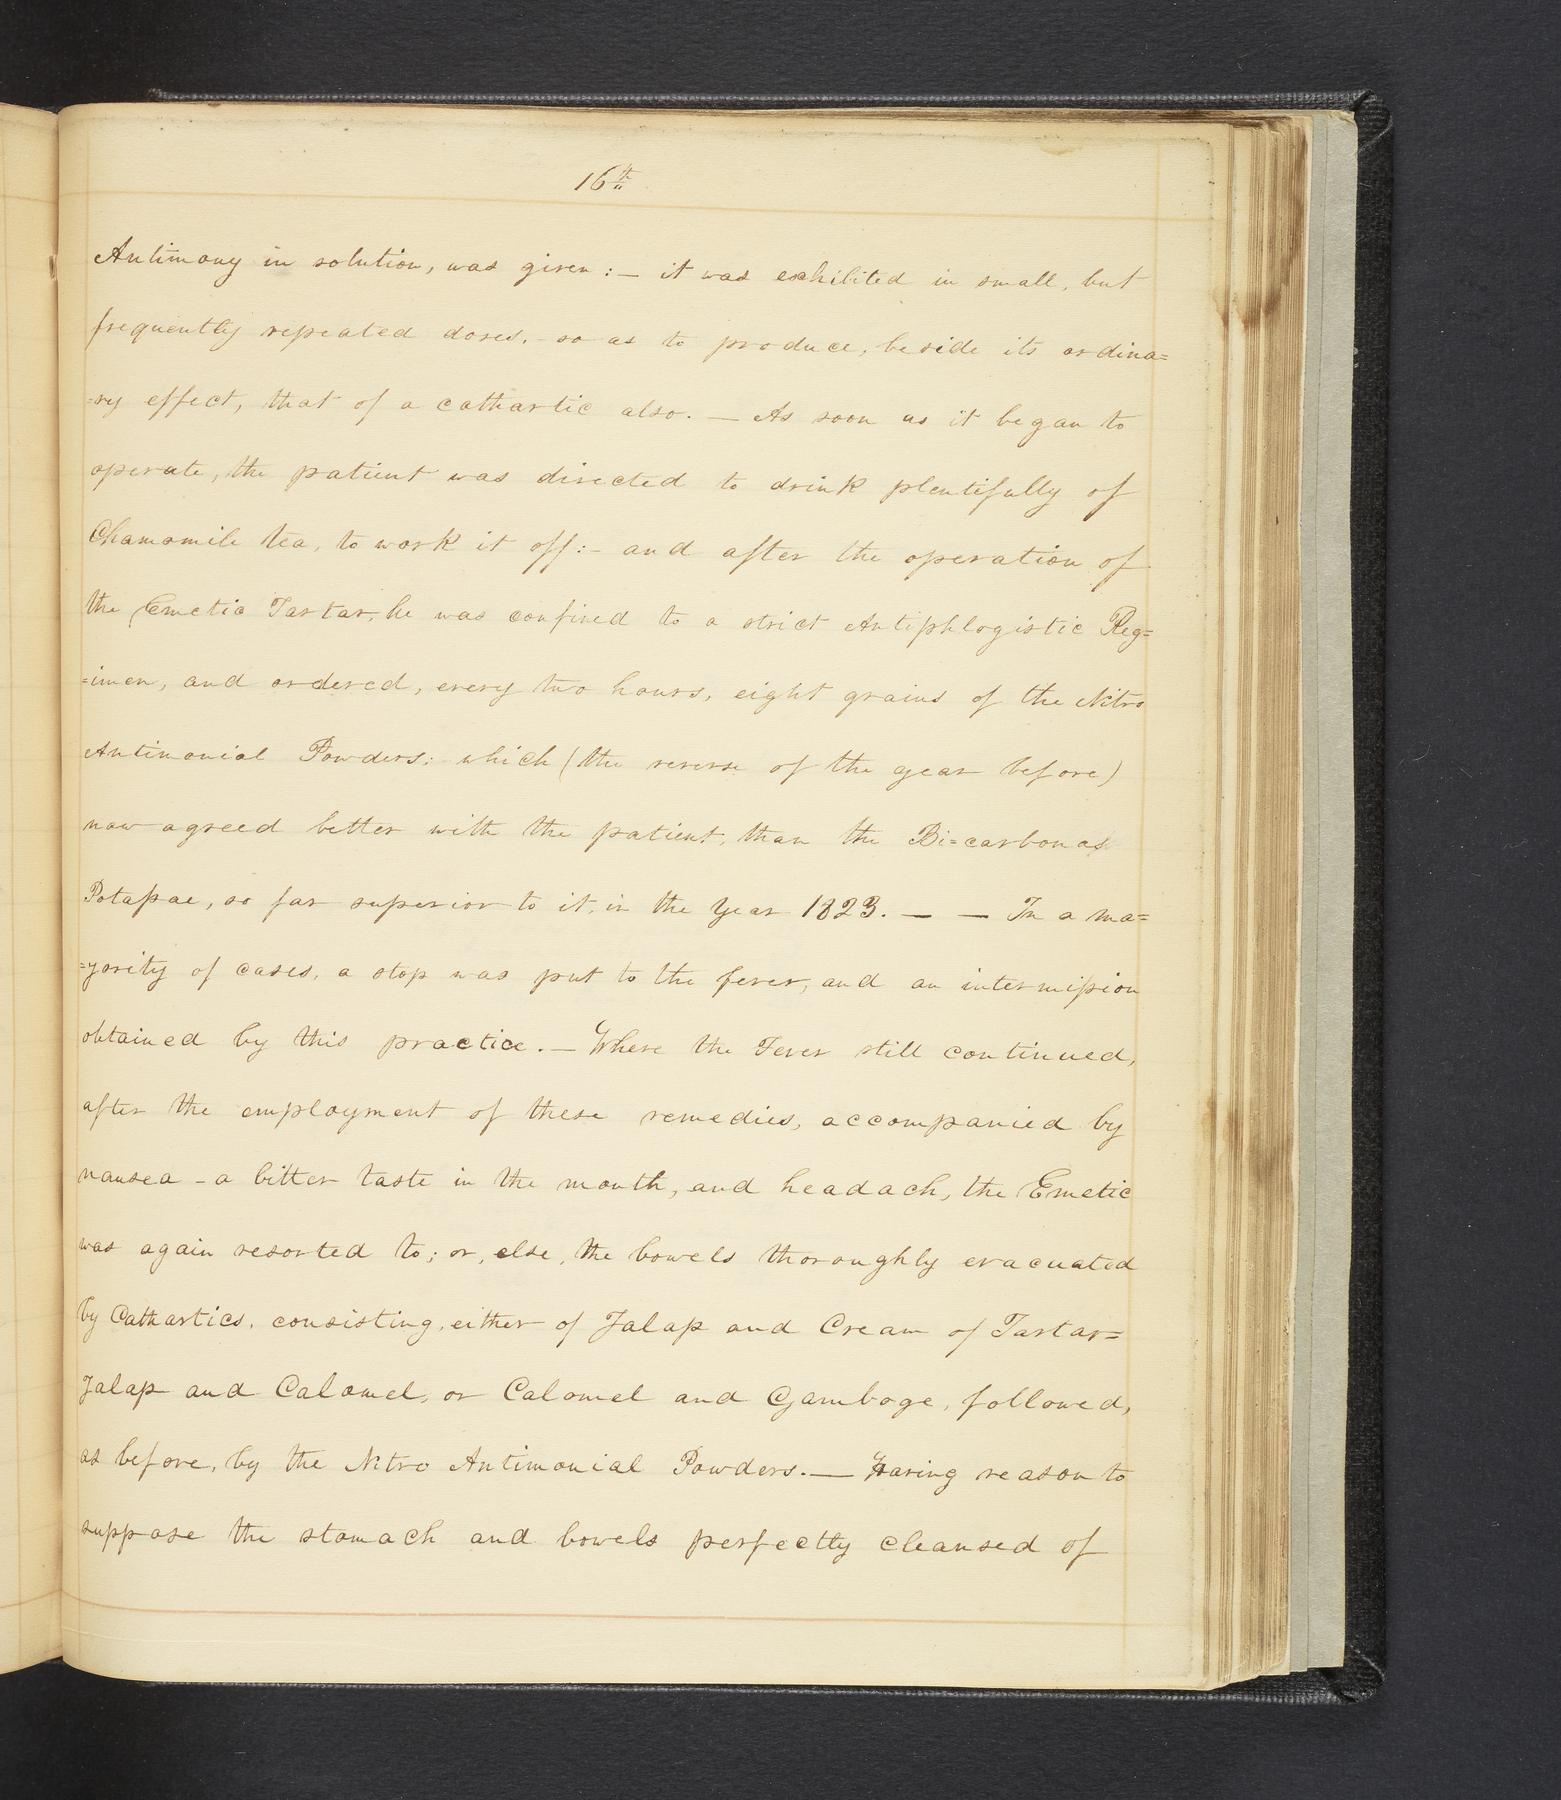 16th
Antimony in solution, was given:— it was exhibited in small, but
frequently repeated doses, so as to produce, beside its ordina=
=ry effect, that of a cathartic also. — As soon as it began to
operate, the patient was directed to drink plentifully of
Chamomile tea, to work it off:- and after the operation of
the Emetic Tartar, he was confined to a strict Antiphlogistic Reg=
=imen, and ordered, every two hours, eight grains of the Nitro
Antimonial Powders; which (the reverse of the year before)
now agreed better with the patient, than the Bi=carbonas
Potassae, so far superior to it, in the Year 1823. — — In a ma=
=jority of cases, a stop was put to the fever, and an intermission
obtained by this practice. — Where the Fever still continued,
after the employment of these remedies, accompanied by
nausea - a bitter taste in the mouth, and headach, the Emetic
was again resorted to; or, else, the bowels thoroughly evacuated
by Cathartics, consisting, either of Jalap and Cream of Tartar=
Jalap and Calomel, or Calomel and Gamboge, followed,
as before, by the Nitro Antimonial Powders. — Having reason to
suppose the stomach and bowels perfectly cleansed of